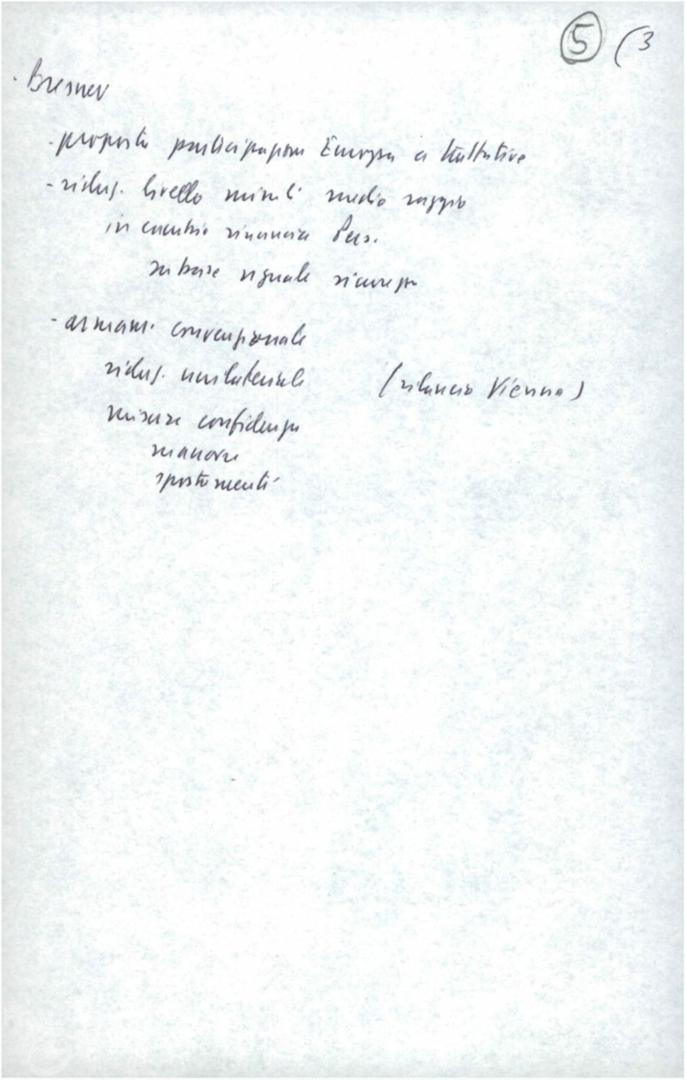 5 (3
. Bresnev
- proposta participazione Europa a trattative
- riduz. livello missili medio raggio
in cambio rinuncia Per.
su base uguale sicurezza
- armam. convenzionale
riduz. unilaterale (rilancio Vienna)
misure confidenza
manovre
spostamenti